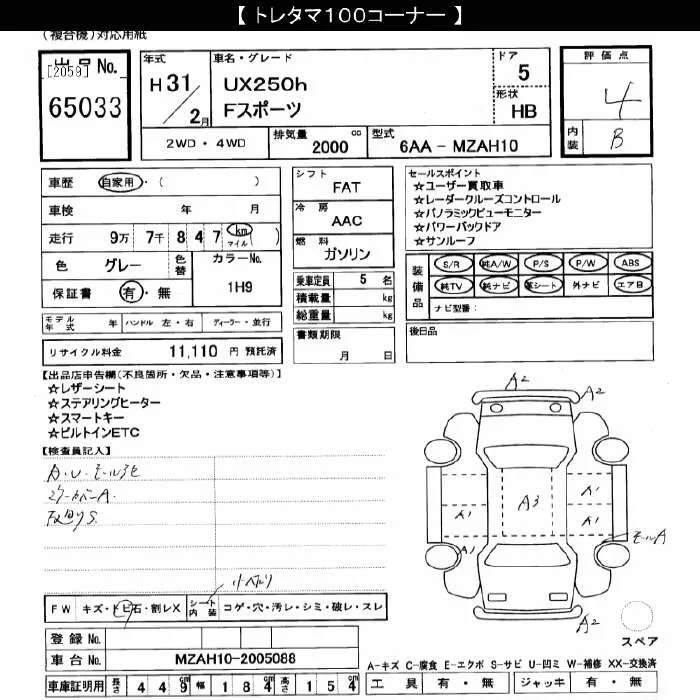 【 トレタマ100コーナー 】
(複合機)対応用紙
出品 No.
[2059]
65033
年式
H 31/2月
車名・グレード
UX250h
Fスポーツ
ドア
5
形状
HB
評価点
4
内装
B
2WD・4WD
排気量
2000 cc
型式
6AA - MZAH10
車歴 自家用・( )
車検 年 月
走行 9万 7千 8 4 7 km マイル ( )
色 グレー 色替
カラーNo.
1H9
保証書 有・無
シフト
FAT
冷房
AAC
燃料
ガソリン
乗車定員 5 名
積載量 kg
総重量 kg
書類期限
月 日
セールスポイント
☆ユーザー買取車
☆レーダークルーズコントロール
☆パノラミックビューモニター
☆パワーバックドア
☆サンルーフ
装備品
S/R 純A/W P/S P/W ABS
純TV 純ナビ 革シート 外ナビ エアB
ナビ型番:
後日品
モデル年式 年 ハンドル 左・右 ディーラー・並行
リサイクル料金 11,110 円 預託済
【出品店申告欄(不良箇所・欠品・注意事項等)】
☆レザーシート
☆ステアリングヒーター
☆スマートキー
☆ビルトインETC
【検査員記入】
A.U.
A.
S.
A2
A2
A3
A1
A1
A1
A1
A1
モールA
A2
スペア
FW キズ・トビ石・割レX
シート内装 コゲ・穴・汚レ・シミ・破レ・スレ
登録 No.
車台 No. MZAH10-2005088
A-キズ C-腐食 E-エクボ S-サビ U-凹ミ W-補修 XX-交換済
車庫証明用 長さ 4 4 9 cm 幅 1 8 4 cm 高さ 1 5 4 cm
工具 有・無 ジャッキ 有・無